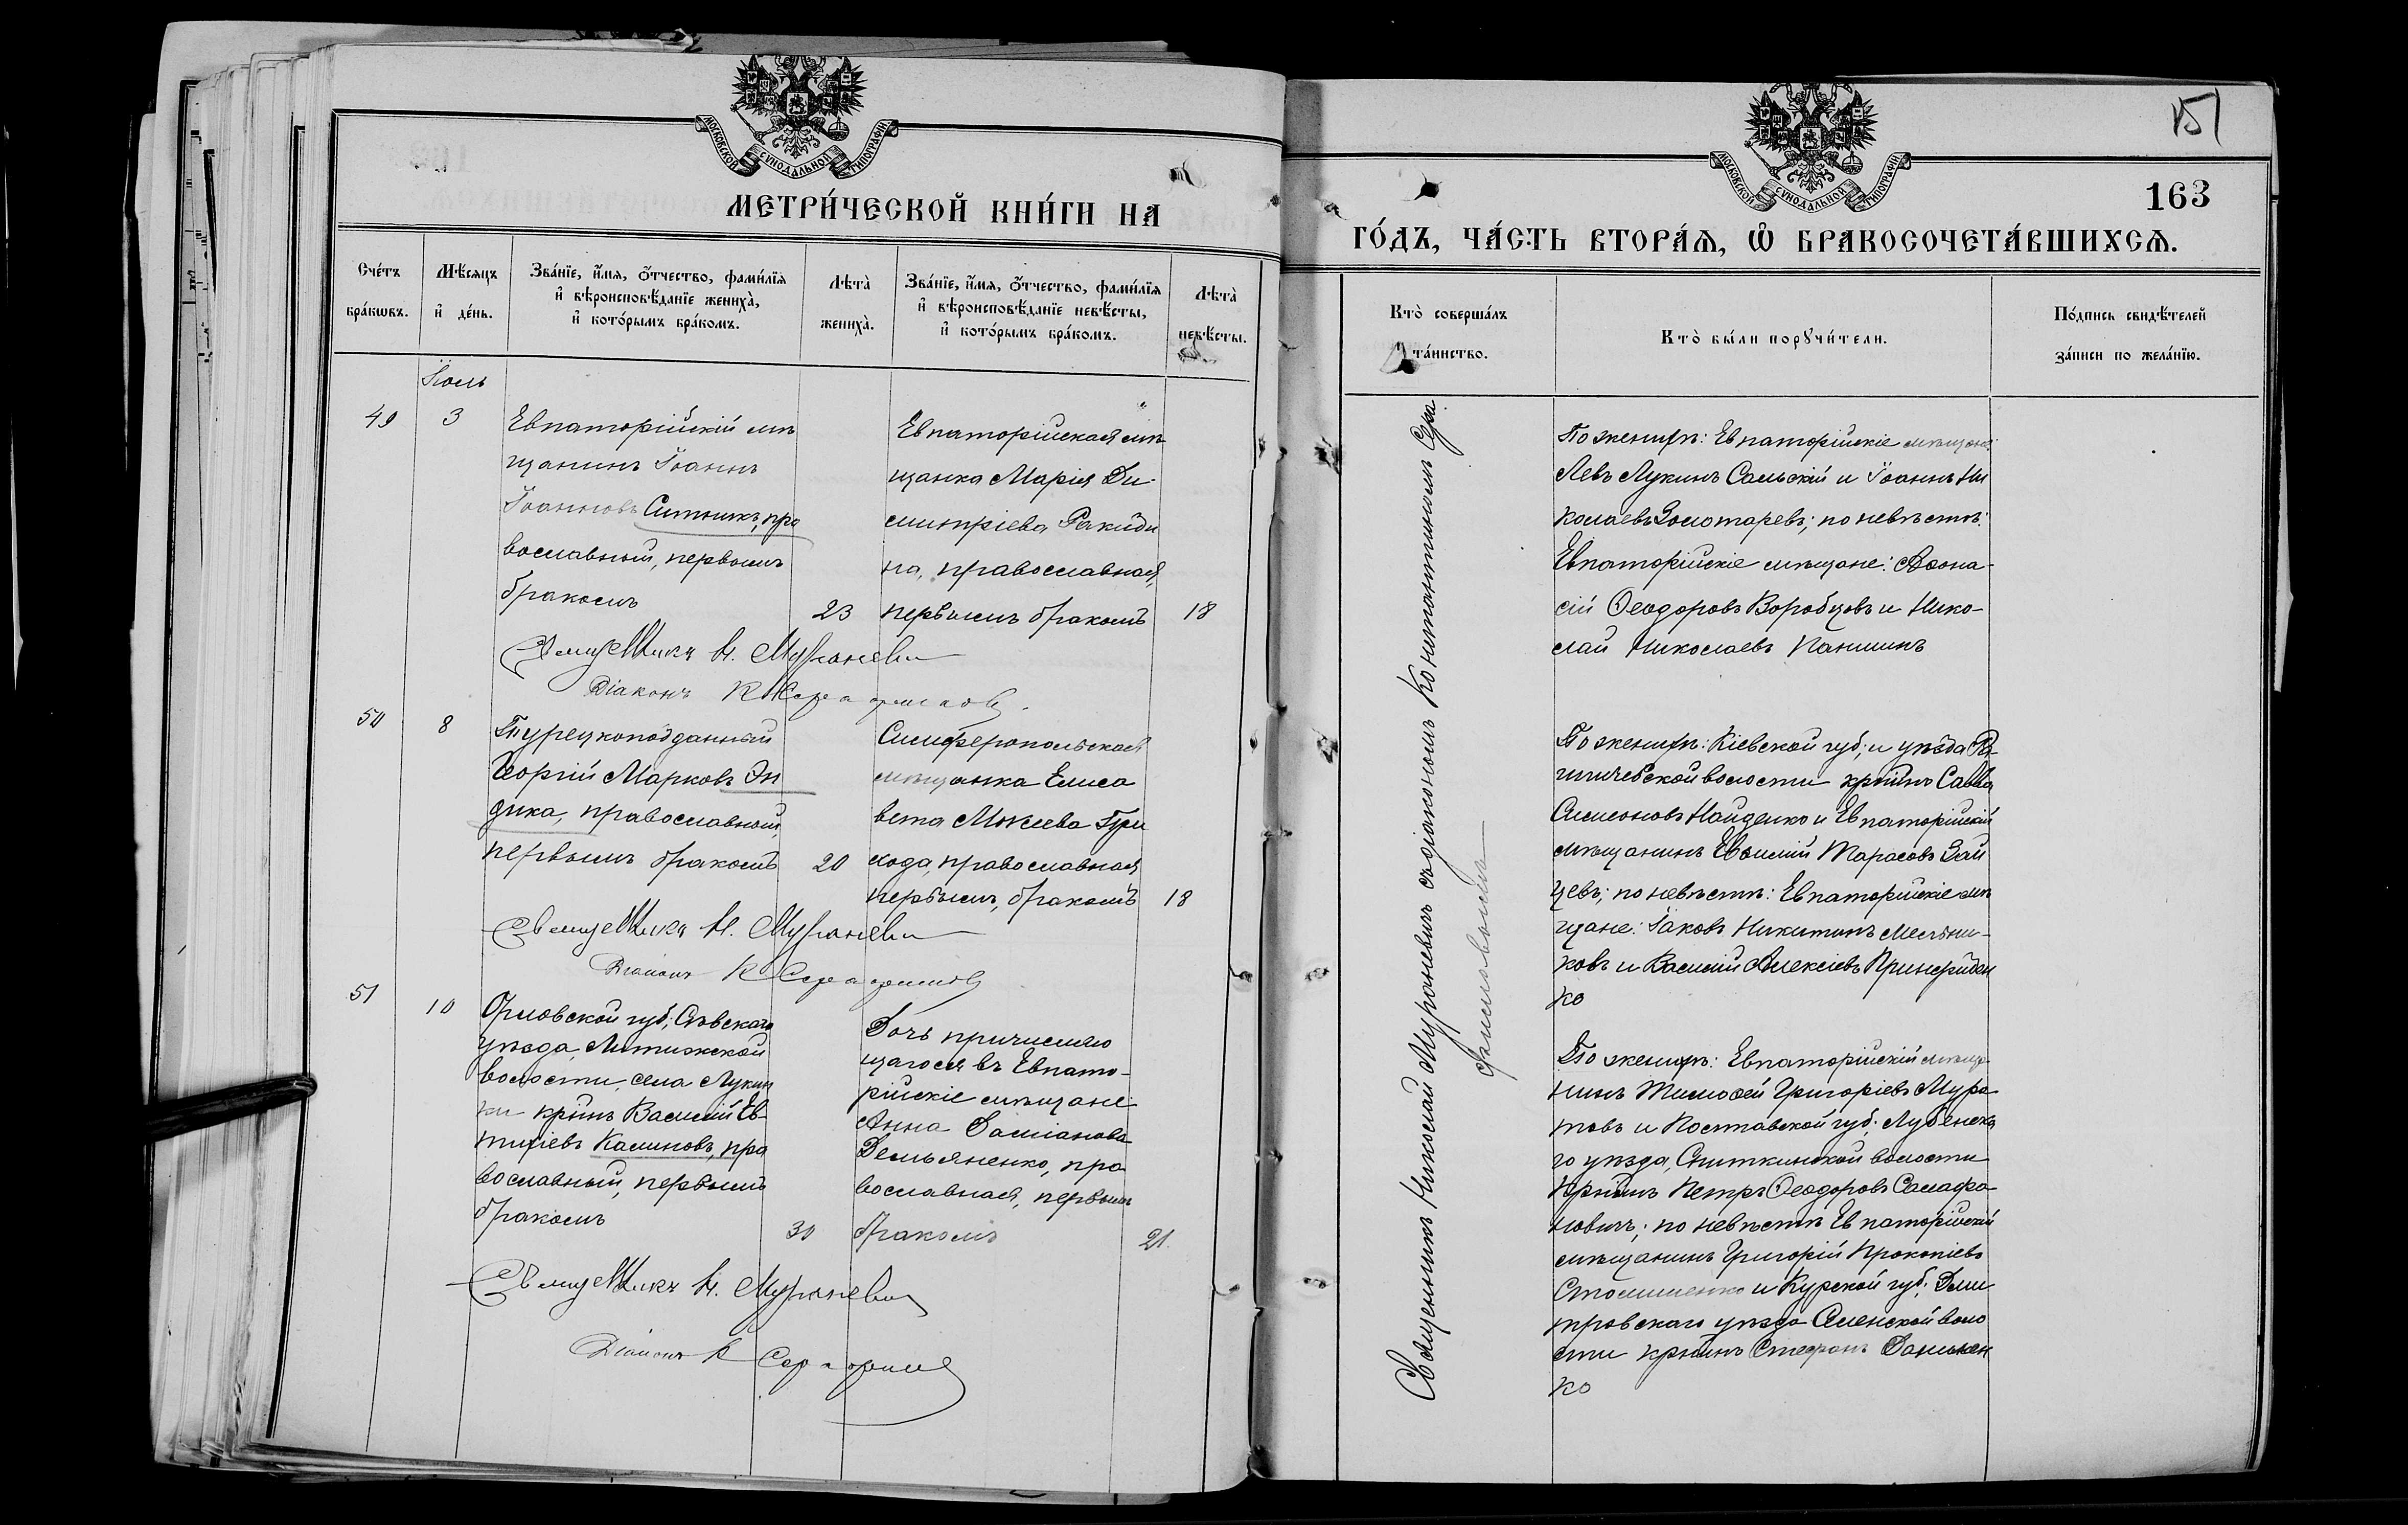 МОСКОВСКОЙ СѴНОДАЛЬНОЙ ТИПОГРАФІИ
МЕТРИ́ЧЕСКОЙ КНИ́ГИ НА
Сче́тъ бра́кѡвъ.
Мѣ́сяцъ и҆ де́нь.
Зва́нїе, и҆́мя, ѻ҆́тчество, фами́лїя
и҆ вѣроисповѣ́данїе жениха̀,
и҆ кото́рымъ бра́комъ.
Лѣ́та̀ жениха̀.
Зва́нїе, и҆́мя, ѻ҆́тчество, фами́лїя
и҆ вѣроисповѣ́данїе невѣ́сты,
и҆ кото́рымъ бра́комъ.
Лѣ́та̀ невѣ́сты.
Іюль
49
3
Евпаторійскій мѣ
щанинъ Іоаннъ
Іоанновъ Ситникъ, пра
вославный, первымъ
бракомъ
23
Евпаторійская мѣ
щанка Марія Ди
митріева Ракиди
на, православная,
первымъ бракомъ
18
Священникъ Н. Мураневичъ
Діаконъ К Серафимовъ
50
8
Турецкоподданный
Георгій Марковъ Эн
дика, православный,
первымъ бракомъ
20
Симферопольская
мѣщанка Елиса
вета Мокіева Гри
хода, православная
первымъ, бракомъ
18
Священникъ Н. Мураневичъ
Діаконъ К Серафимовъ
51
10
Орловской губ., Сѣвскаго
уѣзда, Литижской
волости, села Лукин
ки кр-нинъ Василій Ев
тихіевъ Калиновъ, пра
вославный, первымъ
бракомъ
30
Дочь причисляю
щагося въ Евпато-
рійскіе мѣщане
Анна Даміанова
Демьяненко, пра
вославная, первымъ
бракомъ
21.
Священникъ Н. Мураневичъ
Діаконъ К Серафимовъ
151
МОСКОВСКОЙ СѴНОДАЛЬНОЙ ТИПОГРАФІИ
163
ГО́ДЪ, ЧА́СТЬ ВТОРА́Я, Ѽ БРАКОСОЧЕТА́ВШИХСЯ.
Кто̀ соверша́лъ та́инство.
Кто̀ бы́ли порꙋчи́тели.
По́дпись свидѣ́телей за́писи по жела́нїю.
Священникъ Николай Мураневичъ съ діакономъ Константиномъ Сера
фимовымъ
По женихѣ: Евпаторійскіе мѣщане:
Левъ Лукинъ Сальскій и Іоаннъ Ни
колаевъ Золотаревъ; по невѣстѣ:
Евпаторійскіе мѣщане: Аѳана-
сій Ѳеодоровъ Воробцовъ и Нико-
лай Николаевъ Паншинъ
По женихѣ: Кіевской губ., и уѣзда
волости кр-нинъ Савва
Симеоновъ Найденко и Евпаторійскій
мѣщанинъ Евѳимій Тарасовъ Зай
цевъ; по невѣстѣ: Евпаторійскіе мѣ
щане: Іаковъ Никитинъ Мельни-
ковъ и Василій Алексіевъ
ко
По женихѣ: Евпаторійскій мѣща
нинъ Тимоѳей Григоріевъ Мура
товъ и Полтавской губ., Лубенска
го уѣзда, Сниткинской волости
кр-нинъ Петръ Ѳеодоровъ Самафа
ловичъ; по невѣстѣ Евпаторійскій
мѣщанинъ Григорій Прокопіевъ
и Курской губ. Дми
тровскаго уѣзда волo
сти кр-нинъ Стефанъ Данилен
ко